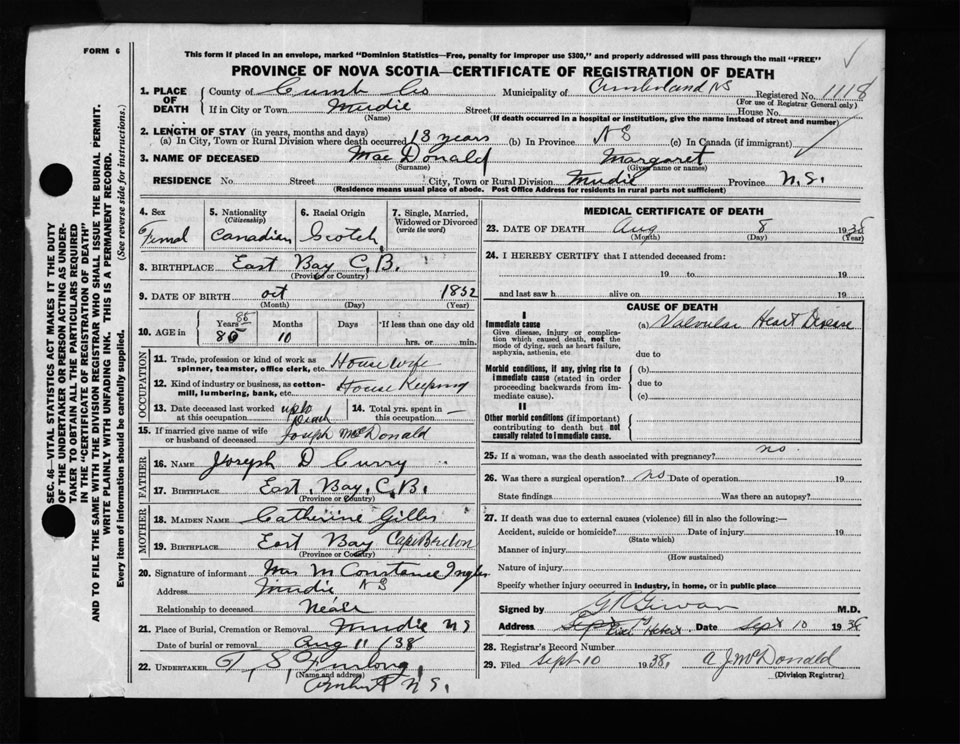 FORM 6
This form if placed in an envelope, marked "Dominion Statistics—Free, penalty for improper use $300," and properly addressed will pass through the mail "FREE"
PROVINCE OF NOVA SCOTIA—CERTIFICATE OF REGISTRATION OF DEATH
1. PLACE OF DEATH
County of Cumb Co Municipality of Cumberland NS Registered No. 1118
(For use of Registrar General only)
If in City or Town Street House No.
(Name) (If death occurred in a hospital or institution, give the name instead of street and number)
2. LENGTH OF STAY (in years, months and days)
(a) In City, Town or Rural Division where death occurred 18 years (b) In Province NS (c) In Canada (if immigrant)
3. NAME OF DECEASED MacDonald Margaret
(Surname) (Given name or names)
RESIDENCE No. Street City, Town or Rural Division Province N.S.
(Residence means usual place of abode. Post Office Address for residents in rural parts not sufficient)
4. Sex Femal
5. Nationality (Citizenship) Canadian
6. Racial Origin Scotch
7. Single, Married, Widowed or Divorced (write the word)
8. BIRTHPLACE East Bay C.B.
(Province or Country)
9. DATE OF BIRTH Oct 1852
(Month) (Day) (Year)
10. AGE in Years 85 Months 10 Days *If less than one day old
hrs. or min.
OCCUPATION
11. Trade, profession or kind of work as spinner, teamster, office clerk, etc. House Wife
12. Kind of industry or business, as cotton-mill, lumbering, bank, etc. House Keeping
13. Date deceased last worked at this occupation up to Death
14. Total yrs. spent in this occupation —
15. If married give name of wife or husband of deceased Joseph McDonald
FATHER
16. NAME Joseph D Curry
17. BIRTHPLACE East Bay, C.B.
(Province or Country)
MOTHER
18. MAIDEN NAME Catherine Gillis
19. BIRTHPLACE East Bay Cape Breton
(Province or Country)
20. Signature of informant Mrs M Constance
Address NS
Relationship to deceased
21. Place of Burial, Cremation or Removal NS
Date of burial or removal Aug 11/38
22. UNDERTAKER T. S. Furlong
(Name and address)
Amherst N.S.
MEDICAL CERTIFICATE OF DEATH
23. DATE OF DEATH Aug 8 1938
(Month) (Day) (Year)
24. I HEREBY CERTIFY that I attended deceased from:
19 to 19
and last saw h alive on 19
CAUSE OF DEATH
I
Immediate cause (a) Valvular Heart Disease
Give disease, injury or complication which caused death, not the mode of dying, such as heart failure, asphyxia, asthenia, etc due to
Morbid conditions, if any, giving rise to immediate cause (stated in order proceeding backwards from immediate cause). (b)
due to
(c)
II
Other morbid conditions (if important) contributing to death but not causally related to immediate cause.
25. If a woman, was the death associated with pregnancy? no.
26. Was there a surgical operation? no Date of operation 19
State findings Was there an autopsy?
27. If death was due to external causes (violence) fill in also the following:—
Accident, suicide or homicide? Date of injury 19
(State which)
Manner of injury
(How sustained)
Nature of injury
Specify whether injury occurred in industry, in home, or in public place
Signed by M.D.
Address Date Sept 10 1938
28. Registrar's Record Number
29. Filed Sept 10 1938, A J McDonald
(Division Registrar)
SEC. 46—VITAL STATISTICS ACT MAKES IT THE DUTY
OF THE UNDERTAKER OR PERSON ACTING AS UNDER-
TAKER TO OBTAIN ALL THE PARTICULARS REQUIRED
IN THE "CERTIFICATE OF REGISTRATION OF DEATH"
AND TO FILE THE SAME WITH THE DIVISION REGISTRAR WHO SHALL ISSUE THE BURIAL PERMIT.
WRITE PLAINLY WITH UNFADING INK. THIS IS A PERMANENT RECORD.
Every item of information should be carefully supplied. (See reverse side for instructions.)